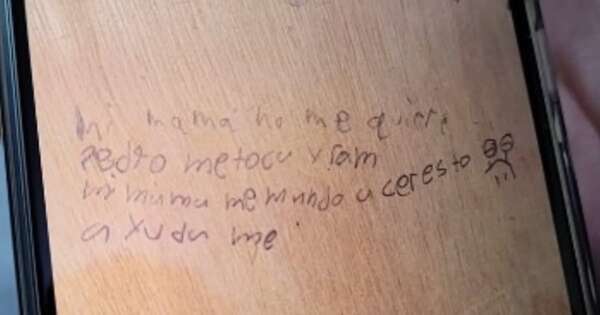 mi mamá no me quiere
Pedro me toca y Iam
mi mama me mando a cer esto
a xuda me